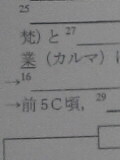 25
梵)と 27
業(カルマ)に
→16
→前5C頃、29